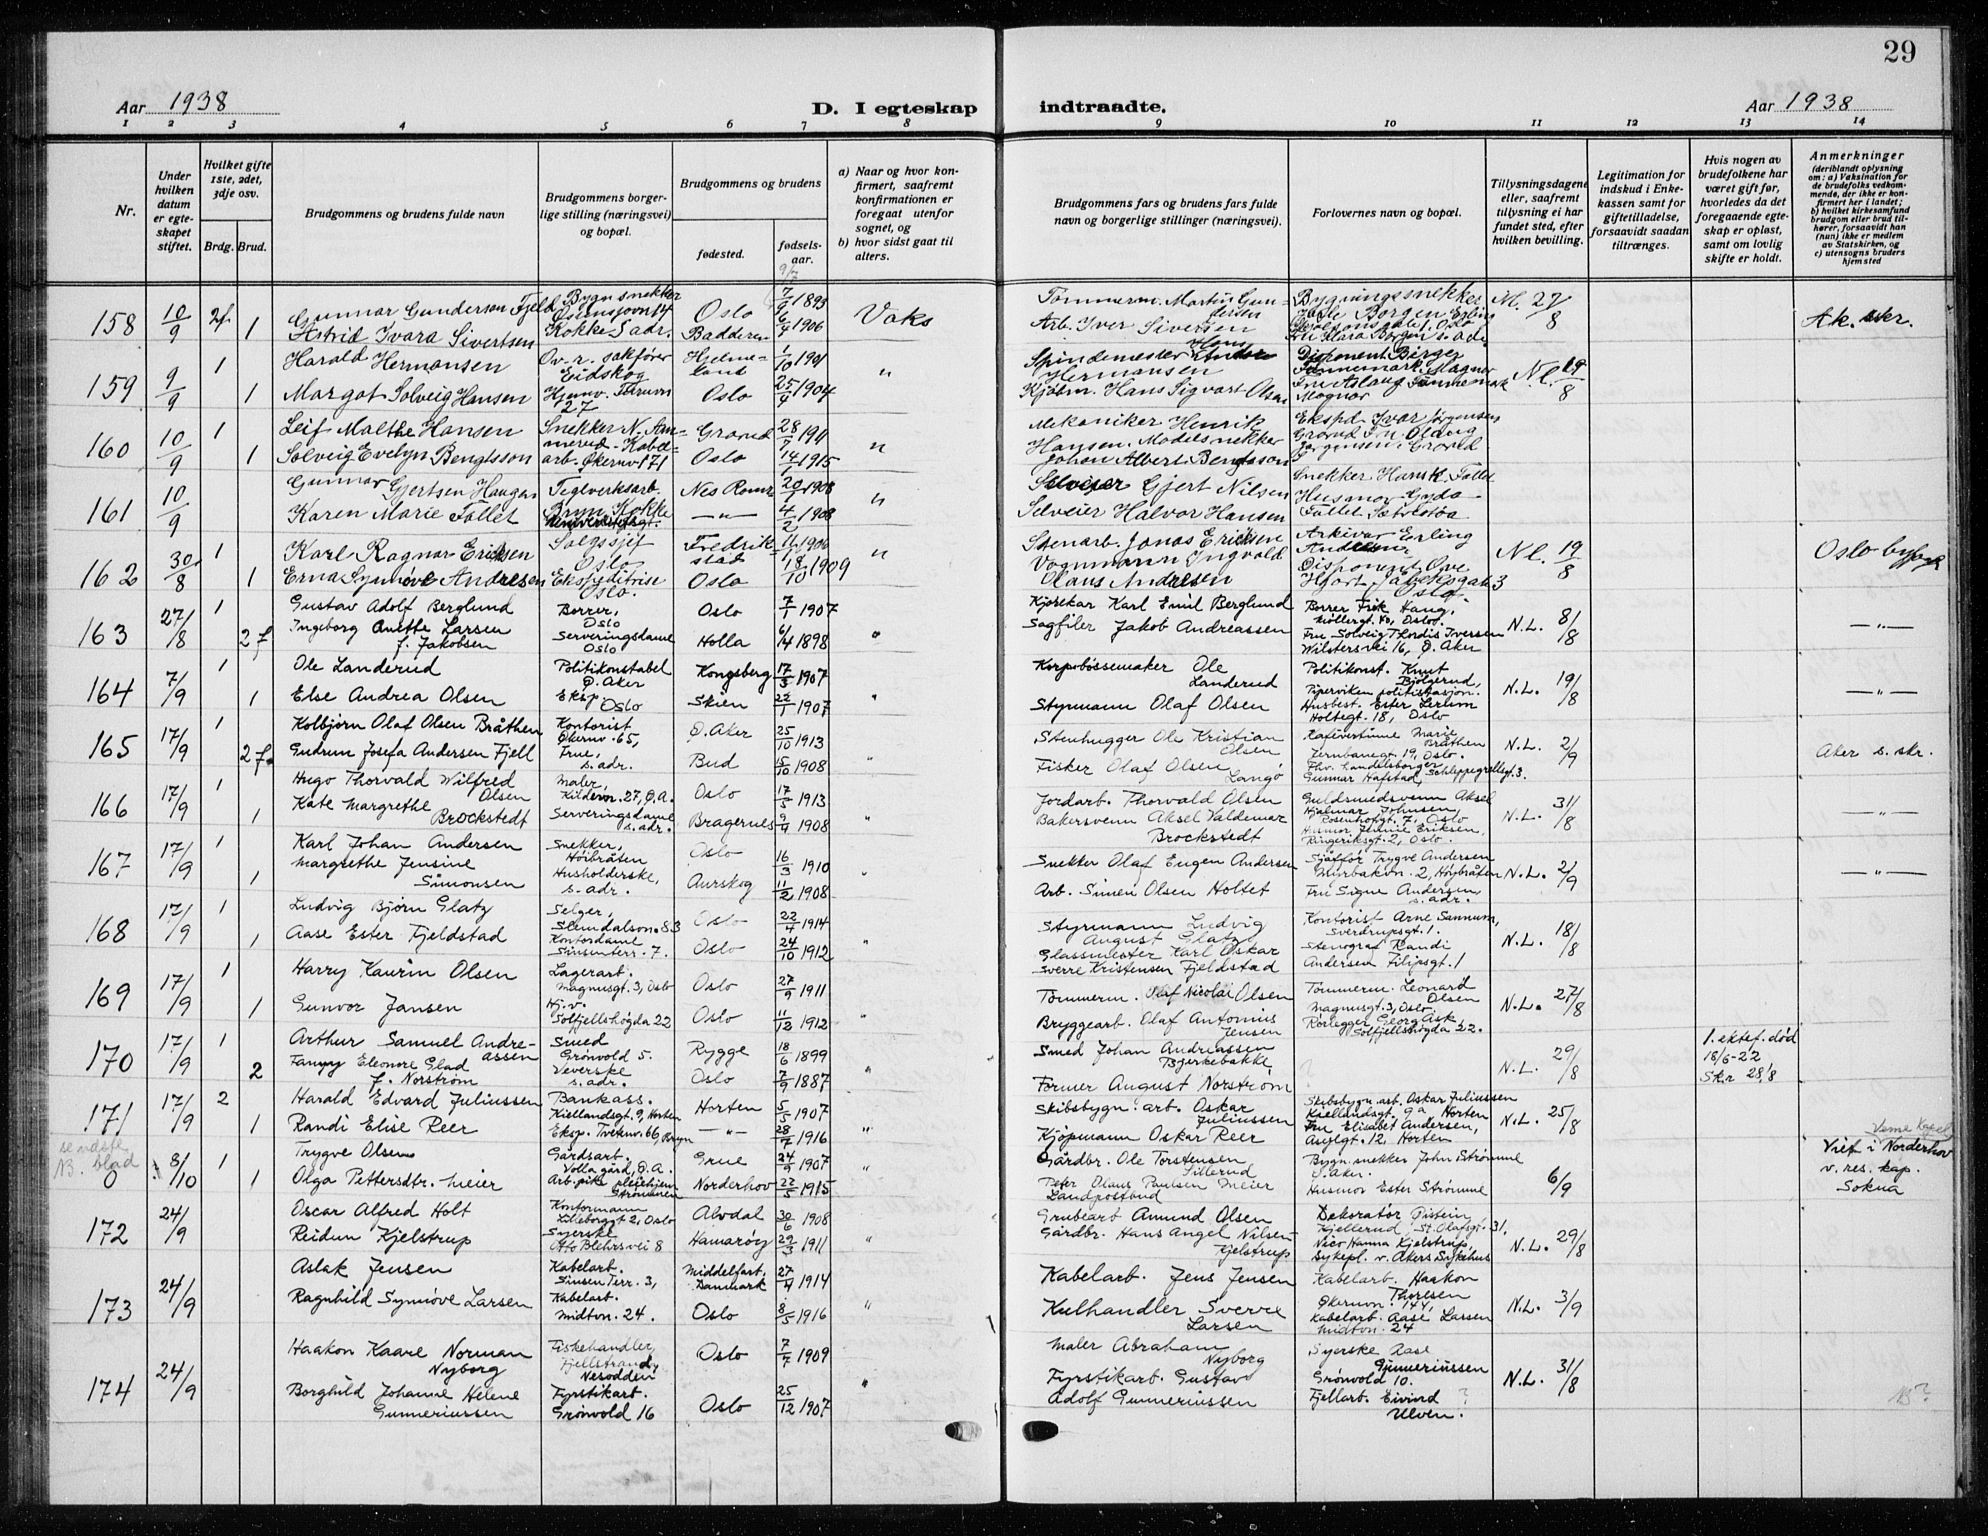 29
Aar 1938
D. I egteskap indtraadte.
Aar 1938
1 2 3 4 5 6 7 8 9 10 11 12 13 14
Nr.
Under hvilken datum er egteskapet stiftet.
Hvilket gifte 1ste, 2det, 3dje osv.
Brdg. Brud.
Brudgommens og brudens fulde navn
Brudgommens borgerlige stilling (næringsvei) og bopæl.
Brudgommens og brudens
fødested.
fødselsaar.
a) Naar og hvor konfirmert, saafremt konfirmationen er foregaat utenfor sognet, og
b) hvor sidst gaat til alters.
Brudgommens fars og brudens fars fulde navn og borgerlige stillinger (næringsvei).
Forlovernes navn og bopæl.
Tillysningsdagene eller, saafremt tillysning ei har fundet sted, efter hvilken bevilling.
Legitimation for indskud i Enkekassen samt for giftetilladelse, forsaavidt saadan tiltrænges.
Hvis nogen av brudefolkene har været gift før, hvorledes da det foregaaende egteskap er opløst, samt om lovlig skifte er holdt.
Anmerkninger (deriblandt oplysning om: a) Vaksination for de brudefolks vedkommende, der ikke er konfirmert her i landet; b) hvilket kirkesamfund brudgom eller brud tilhører, forsaavidt han (hun) ikke er medlem av Statskirken, og c) utensogns bruders hjemsted
158 10/9 1 Gunnar Gunderson Fjeld Bygn snekker Oslo 1893 Vaks
Astrid Ivara Sivertsen Kokke s. adr. Badderen 1906
Arb. Iver Sivertsen
27/8 Ak. skr.
159 9/9 1 Harald Hermansen Ov.r. sakfører Eidskog Hjelmeland 1/10 1901 "
1 Margot Solveig Hansen Oslo 25/9 1904
Spindemester Hans Hermansen
Kjøbm. Hans Sigvart Olsen
Disponent Birger
Magnor
N.L. 19/8
160 10/9 1 Leif Malthe Hansen Snekker Grorud 1911 "
1 Solveig Evelyn Bengtsson Oslo 1915
Mekaniker Henrik Hansen. Modelsnekker Johan Albert Bengtsson
Ekspd. Ivar Jørgensen Grorud
161 10/9 Gunnar Gjertsen Haugen Teglverksarb. Nes Romr. 1908 "
Karen Marie Fallet Bryn Kokke —"— 4/2 1908
Gjert Nilsen
Selveier Halvor Hansen
Snekker Hans Fallet
Husmor Gyda Fallet
162 30/8 1 Karl Ragnar Ericksen Salgssjef Oslo Fredrikstad 1906 "
1 Erna Synnøve Andresen Ekspeditrise Oslo. Oslo 18/10 1909
Stenarb. Jonas Ericksen
Vognmann Ingvald Olaus Andresen
Arkivar Erling Andresen
Disponent Ove Hjort
N.L. 19/8
163 27/8 1 Gustav Adolf Berglund Borrer, Oslo Oslo 7/1 1907
2 f. Ingeborg Anette Larsen f. Jakobsen Serveringsdame Oslo Holla 6/4 1898 "
Kjørekar Karl Emil Berglund
Sagfiler Jakob Andreassen
Fru Solveig Thordis Iversen
Wilstersvei 16, Ø. Aker
N.L. 8/8 —"—
164 7/9 1 Ole Landerud Politikonstabel Ø. Aker Kongsberg 17/3 1907
1 Else Andrea Olsen Eksp. Oslo Skien 22/1 1907 "
Korpsbøssemaker Ole Landerud
Styrmann Olaf Olsen
Politikonst. Knut Bjølgerud,
Piperviken politistasjon.
Husbest. Ester Lerum
Holtegt. 18, Oslo
N.L. 19/8 —"—
165 17/9 1 Kolbjørn Olaf Olsen Bråthen Kontorist Økernv. 65, Ø. Aker 25/10 1913
2 f. Gudrun Josefa Andersen Fjell Frue, s. adr. Bud 5/10 1908 "
Stenhugger Ole Kristian Olsen
Fisker Olaf Olsen Langø
Kafévertinne Marie Bråthen
Jernbanegt. 19, Oslo.
Fhv. handelsborger Gunnar Hafstad, Schleppegrellsgt. 3.
N.L. 2/9 Aker s. skr.
166 17/9 1 Hugo Thorvald Wilfred Olsen Maler, Kildevn. 27, Ø.A. Oslo 17/5 1913
1 Kate Margrethe Brockstedt Serveringsdame s. adr. Bragernes 9/4 1908 "
Jordarb. Thorvald Olsen
Bakersvenn Aksel Valdemar Brockstedt
Guldsmedsvenn Aksel Hjalmar Johnsen,
Rosenhofgt. 7, Oslo
Husmor Jennie Eriksen,
Ringeriksgt. 2, Oslo.
N.L. 31/8 —"—
167 17/9 1 Karl Johan Andersen Snekker, Høibråten Oslo 16/3 1910
1 Margrethe Jensine Simonsen Husholderske, s. adr. Aurskog 11/2 1908 "
Snekker Olaf Eugen Andersen
Arb. Simen Olsen Holtet
Sjåffør Trygve Andersen
Murbakvn. 2, Høybråten
Fru Signe Andersen, s. adr.
N.L. 2/9 —"—
168 17/9 1 Ludvig Bjørn Glatz Selger, Oslo 22/4 1914
1 Aase Ester Fjeldstad Kontordame Sinsenterr. 7. Oslo 24/10 1912 "
Styrmann Ludvig August Glatz
Glassmester Karl Oskar Sverre Kristensen Fjeldstad
Kontorist Arne Sannum,
Sverdrupsgt. 1.
Stenograf Randi Andersen Filipsgt. 1
N.L. 18/8
169 17/9 1 Harry Kaurin Olsen Lagerarb. Magnusgt. 3, Oslo Oslo 27/9 1911
1 Gunvor Jansen Hj.v. Solfjellshøgda 22 Oslo 11/12 1912 "
Tømmerm. Olaf Nicolai Olsen
Bryggearb. Olaf Antonius Jensen
Tømmerm. Leonard Olsen
Magnusgt. 3, Oslo.
Rørlegger Georg Ask, Solfjellshøgda 22.
N.L. 27/8
170 17/9 1 Arthur Samuel Andreassen Smed Grønvold 5. Rygge 18/6 1899
2 Fanny Eleonore Glad f. Norstrøm Veverske s. adr. Oslo 7/9 1887 "
Smed Johan Andreassen Bjerkebakke,
Former August Norstrøm
?
N.L. 29/8
1. ektef. død 18/6-22 Skr. 28/8
171 17/9 2 Harald Edvard Juliussen Bankass. Kiellandsgt. 9, Horten Horten 5/5 1907
1 Randi Elise Reer Eksp. Tvetenv. 66, Bryn —"— 28/7 1916 "
Skibsbygn. arb. Oskar Juliussen
Kjøpmann Oskar Reer
Skibsbygn. arb. Oskar Juliussen
Kiellandsgt. 9a Horten
Fru Elisabet Andersen,
Asylgt. 12, Horten
N.L. 25/8
se næste blad
N.B. 0 8/10 1 Trygve Olsen Gårdsarb. Volla gård, Ø.A. Grue 24/9 1907
1 Olga Pettersdtr. Meier Arb. pike pleiehjem Strømmen Norderhov 22/5 1915 "
Gårdbr. Ole Torstensen Lillerud
Peter Olaus Paulsen Meier
Landpostbud
Bygn. snekker John Strømme
Ø. Aker.
Husmor Ester Strømme
6/9
Veme Kapel
Viet i Norderhov v. res. kap. Sokna
172 24/9 Oscar Alfred Holt Kontormann Lilleborggt 2, Oslo Alvdal 30/6 1908
Reidun Kjelstrup Syerske Otto Blehrsvei 8 Hamarøy 29/3 1911 "
Grubearb Amund Olsen
Gårdbr. Hans Angel Nilsen Kjelstrup
Dekoratør Øistein Kjellerud, St. Olafsgt. 31,
Nico Hanna Kjelstrup,
Sykepl. v. Akers Sykehus
N.L. 29/8
173 24/9 Aslak Jensen Kabelarb. Sinsen Terr. 3, Middelfart, Danmark 27/4 1914
Ragnhild Synnøve Larsen Kabelarb. Midtvn. 24. Oslo 8/5 1916 "
Kabelarb. Jens Jensen
Kulhandler Sverre Larsen
Kabelarb. Haakon Thoresen
Økernvn. 144,
Kabelarb. Aase Larsen
Midtvn. 24
N.L. 3/9
174 24/9 Haakon Kaare Norman Nyborg Fiskehandler, Fjellstrand, Nesodden Oslo 7/7 1909
Borghild Johanne Helene Gunneriussen Fyrstikarb. Grønvold 16 Oslo 25/12 1907 "
Maler Abraham Nyborg
Fyrstikarb. Gustav Adolf Gunneriussen
Syerske Aase Gunneriussen
Grønvold 10.
Fjellarb. Eivind Ulven. ?
N.L. 31/8